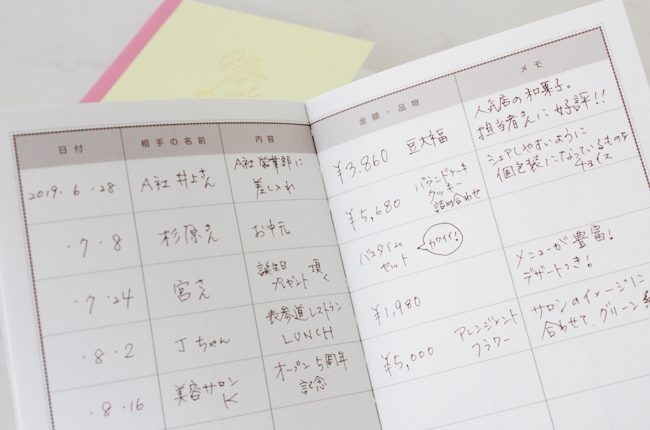 日付 相手の名前 内容 金額・品物 メモ
2019・6・28 A社 井上さん A社 営業部に ¥3,860 豆大福 人気店の和菓子。
差し入れ 担当者さんに好評!!
・7・8 杉原さん お中元 ¥5,680 パウンドケーキ シェアしやすいように
クッキー 個包装になっているものを
詰め合わせ チョイス
・7・24 宮さん 誕生日 バスタイム カワイイ!
プレゼント 頂く セット
・8・2 Jちゃん 表参道レストラン ¥1,980 メニューが豊富!
LUNCH デザートつき!
・8・16 美容サロン オープン5周年 ¥5,000 アレンジメント サロンのイメージに
K 記念 フラワー 合わせて、グリーン